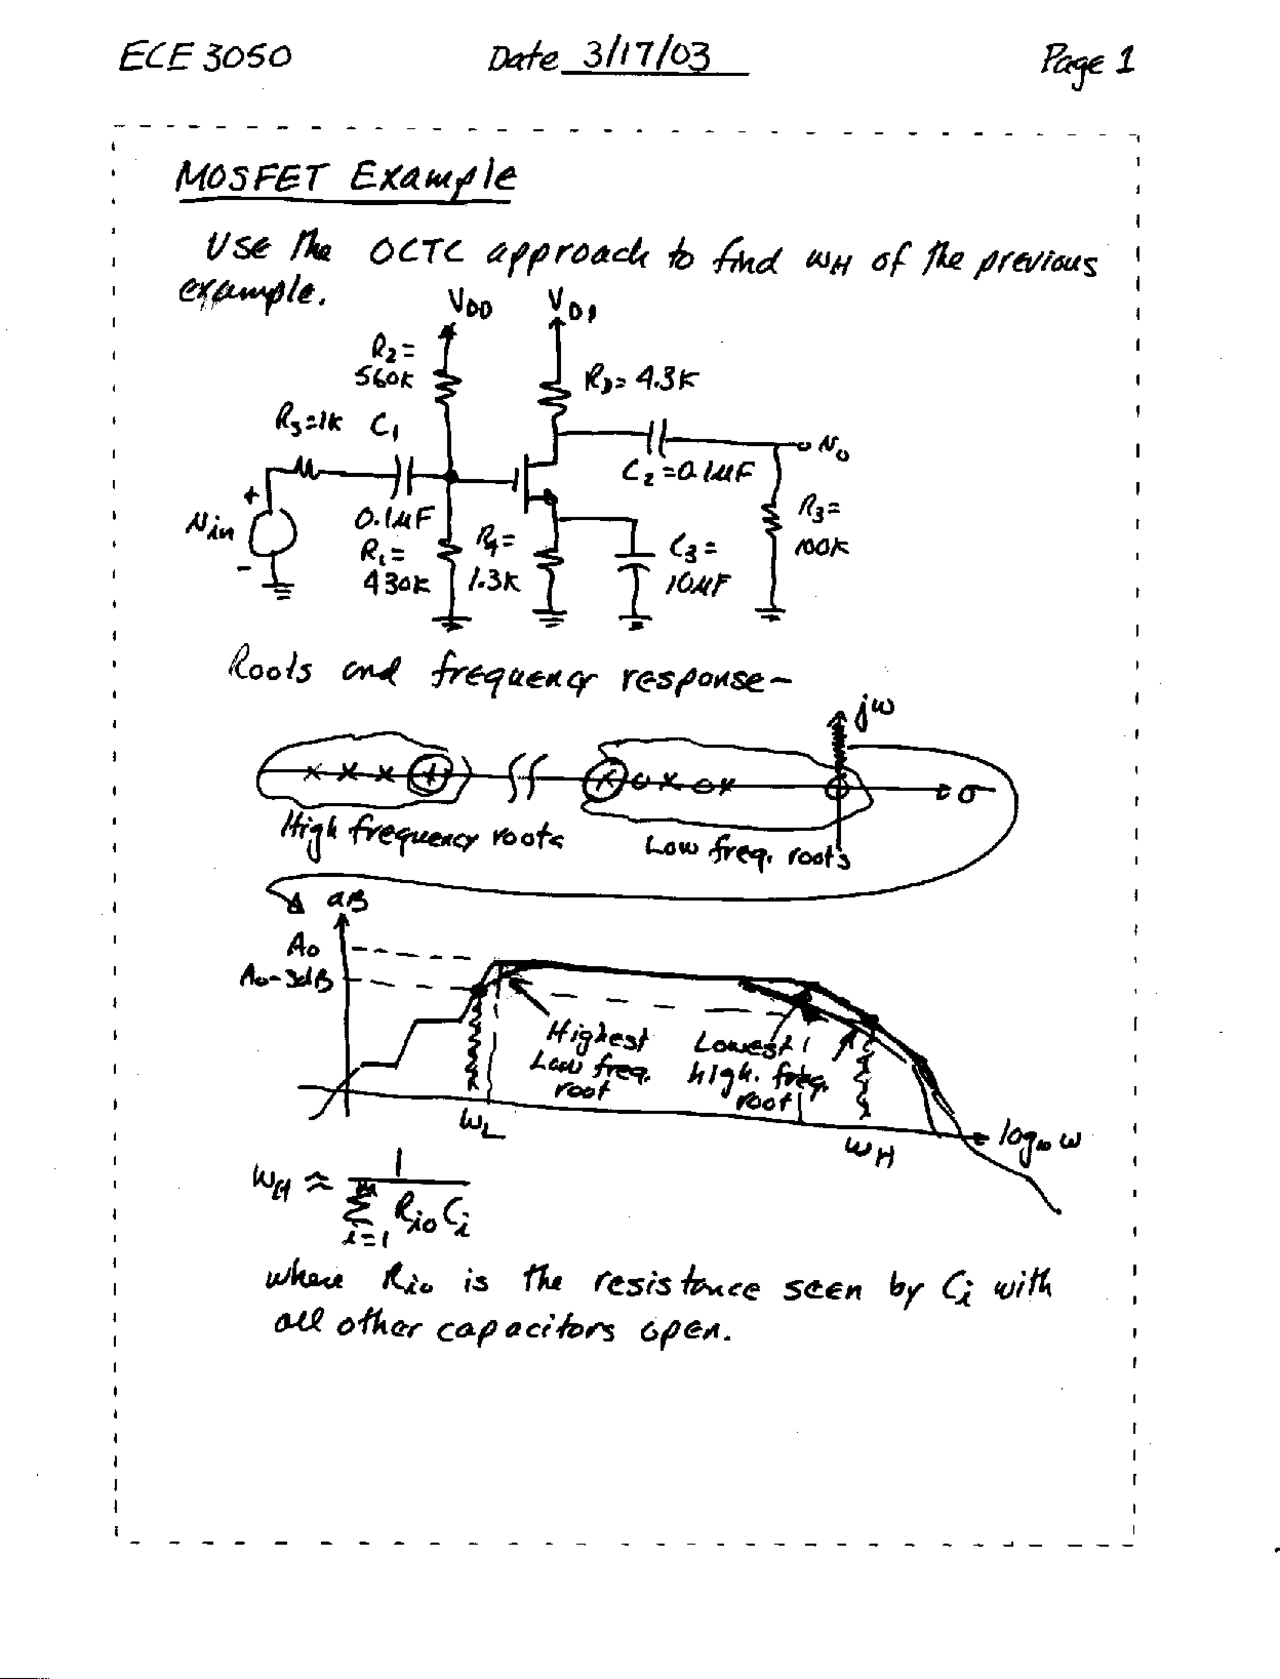 ECE 3050 Date 3/17/03 Page 1
MOSFET Example
Use the OCTC approach to find ωH of the previous
example.
VDD VDD
R2=
560K
RD= 4.3K
RS=1K C1
vo
C2=0.1μF
+
vin
-
0.1μF
R1=
430K
R4=
1.3K
C3=
10μF
R3=
100K
Roots and frequency response-
jω
σ
High frequency roots
Low freq. roots
dB
A0
A0-3dB
Highest
Low freq.
root
Lowest
high. freq.
root
ωL
ωH
log10 ω
ωH ≈ 1 / m Σ i=1 Rio Ci
where Rio is the resistance seen by Ci with
all other capacitors open.